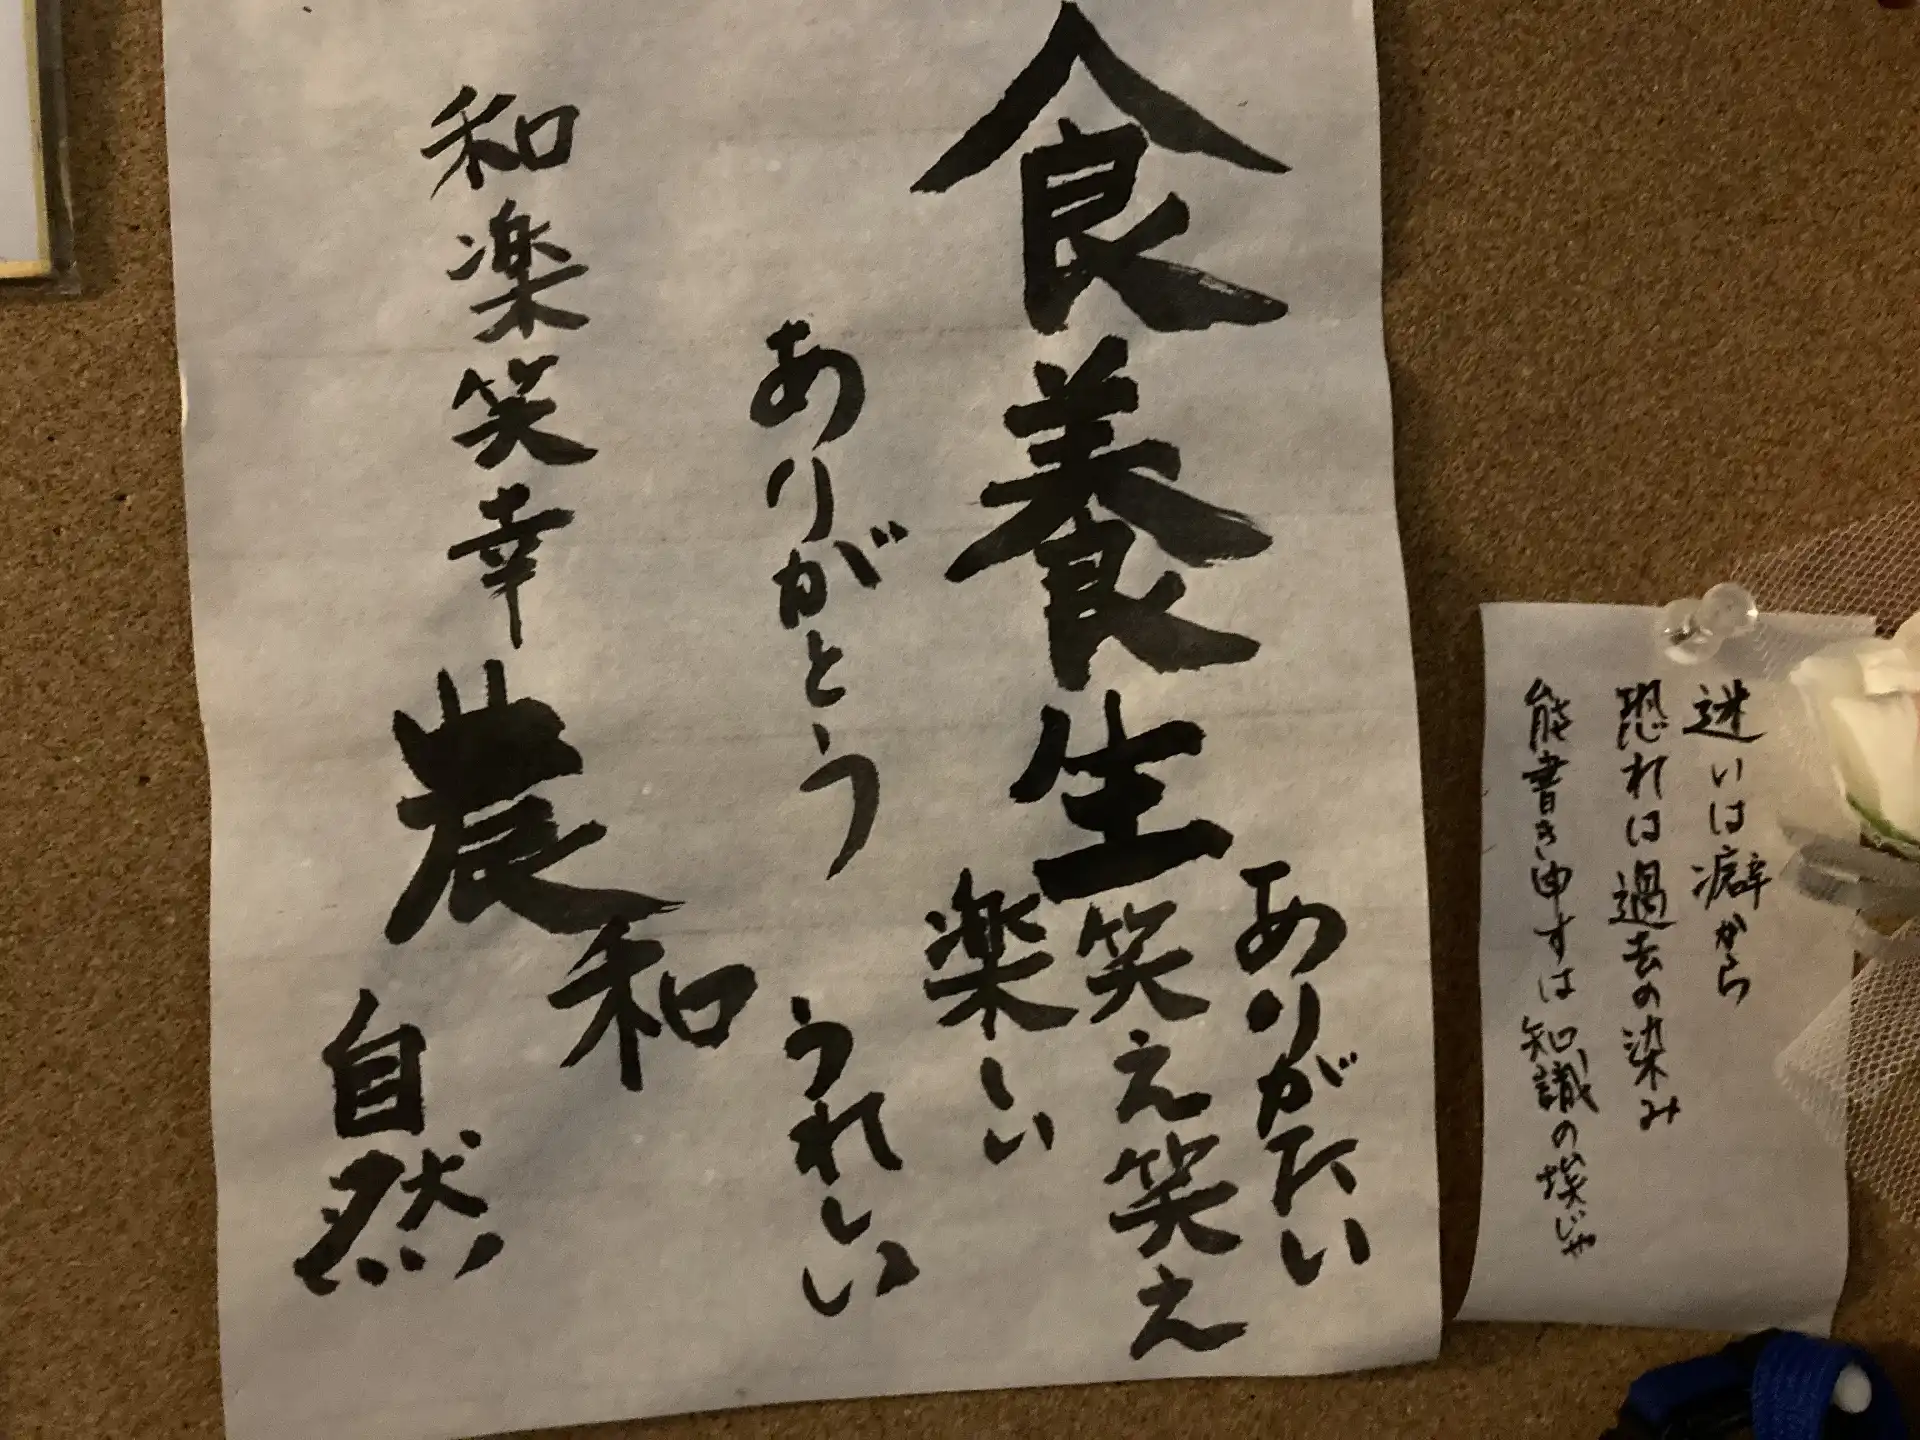 迷いは癖から
恐れは過去の染み
能書き申すは知識の埃じゃ
食養生
ありがたい
笑え笑え
楽しい
ありがとう
うれしい
和楽笑幸
農和
自然